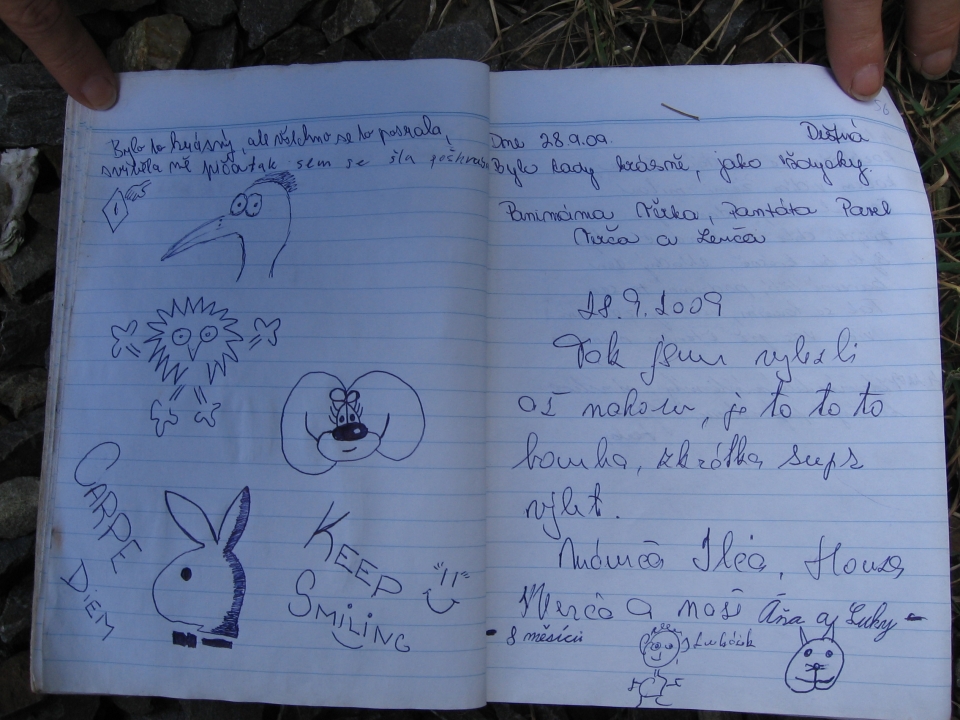 Bylo to krásný, ale všechno se to posrala,
svítila mě píča, tak sem se šla
CARPE
DIEM
KEEP
SMiLiNG
56
Dne 28.9.09. Deštná
Bylo tady krásně, jako vždycky.
Panimáma Věrka, Pantáta Pavel
Verča a Lenča
28.9.2009
Tak jsme vylezli
až nahoru, je to to to
bomba, zkrátka supr
výlet.
Ilča, Honza,
Werča a naši Áňa a Luky -
- 8 měsíců
Lubášek